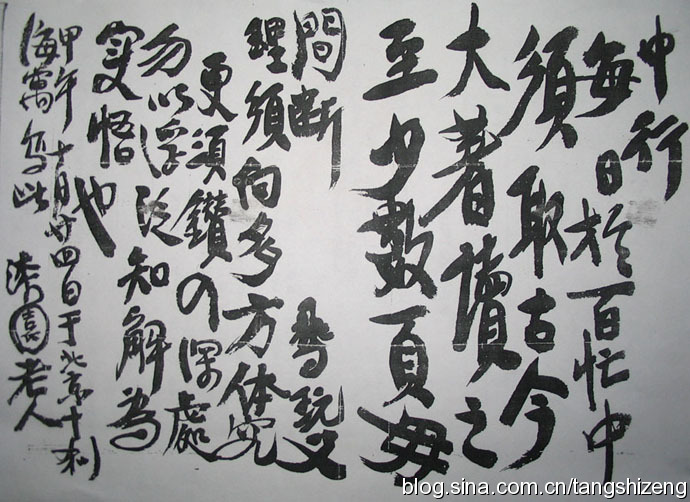 中行
每日於百忙中
須取古今
大著讀之
至少數頁毋
間斷 尋玩义
理須向多方体究
更須鑽入深處
勿以浮泛知解為
实悟也
甲午十月廿四日于北京十刹
海寓写此 漆園老人
blog.sina.com.cn/tangshizeng